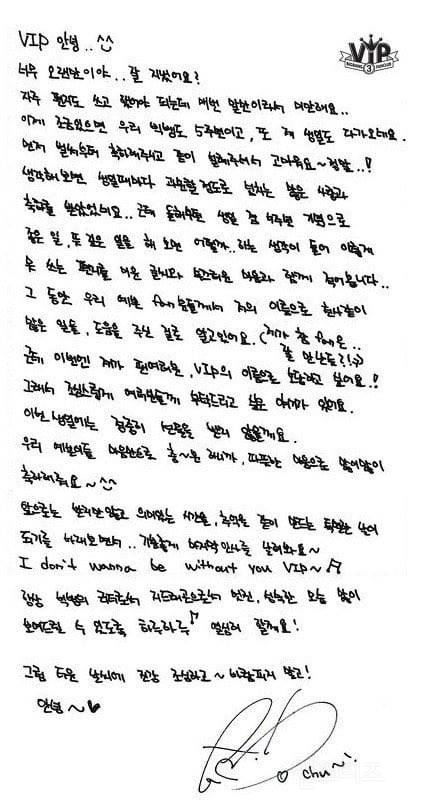 VIP 안녕..^^
VIP
3
너무 오랜만이야.. 잘 지냈어요?
자주 편지도 쓰고 했어야 되는데 매번 말뿐이라서 미안해요..
이게 조금있으면 우리 빅뱅도 5주년이고, 또 제 생일도 다가오네요.
먼저 벌써부터 축하해주시고 같이 설레주셔서 고마워요~ 정말..!!
생각해보면 생일때마다 과분할 정도로 넘치는 많은 사랑과
축하를 받았었네요.. 근데 올해부턴 생일 겸 5주년 기념으로
좋은 일, 뜻 깊은 일을 해 보면 어떨까..하는 생각이 들어 이렇게
못 쓰는 편지를 미운 글씨와 부끄러운 마음과 함께 적어봅니다..
그 동안 우리 예쁜 fan분들께서 저의 이름으로 한사람이
많은 일들, 도움을 주신 걸로 알고있어요. (제가 참 fan은..
잘 만난듯?!:))
근데 이번엔 제가 편여러분, VIP의 이름으로 보답하고 싶어요!!
그래서 조심스럽게 여러분들께 부탁드리고 싶은 이야기 있어요.
이번 생일에는 정중히 선물을 받지 않을께요.
우리 예쁜이들 마음만으로 충~분 하니까, 따뜻한 마음으로 많이많이
축하해줘요~^^
앞으로는 받지만 않고 의미있는 시간을, 추억을 같이 만드는 특별한 날이
되기를 바래보면서.. 기분좋게 마지막 인사를 남겨봐요~
I don't wanna be without you VIP~♬
항상 빅뱅의 리더로서 지드래곤으로서 멋진, 성숙한 모습 많이
보여드릴 수 있도록 하루하루♪ 열심히 할께요!
그럼 더운 날씨에 건강 조심하고~ 바람피지 말고!
안녕~♥
chu~!